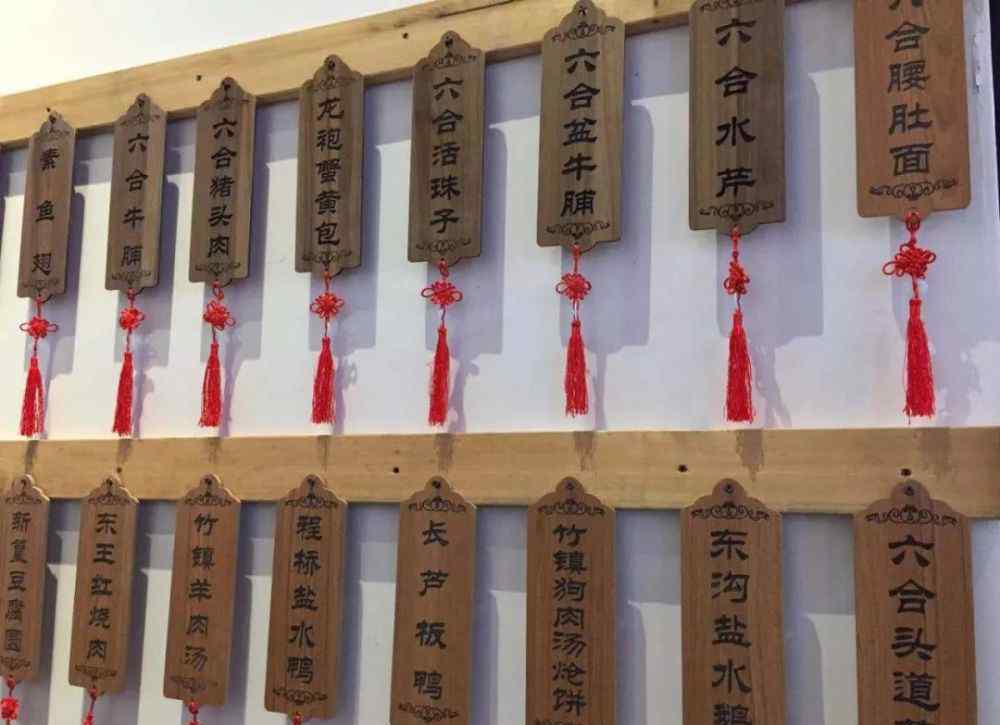 素鱼翅
六合牛脯
六合猪头肉
龙袍蟹黄包
六合活珠子
六合盆牛脯
六合水芹
六合腰肚面
新篁豆腐圆
东王红烧肉
竹镇羊肉汤
程桥盐水鸭
长芦板鸭
竹镇狗肉汤炝饼
东沟盐水鹅
六合头道